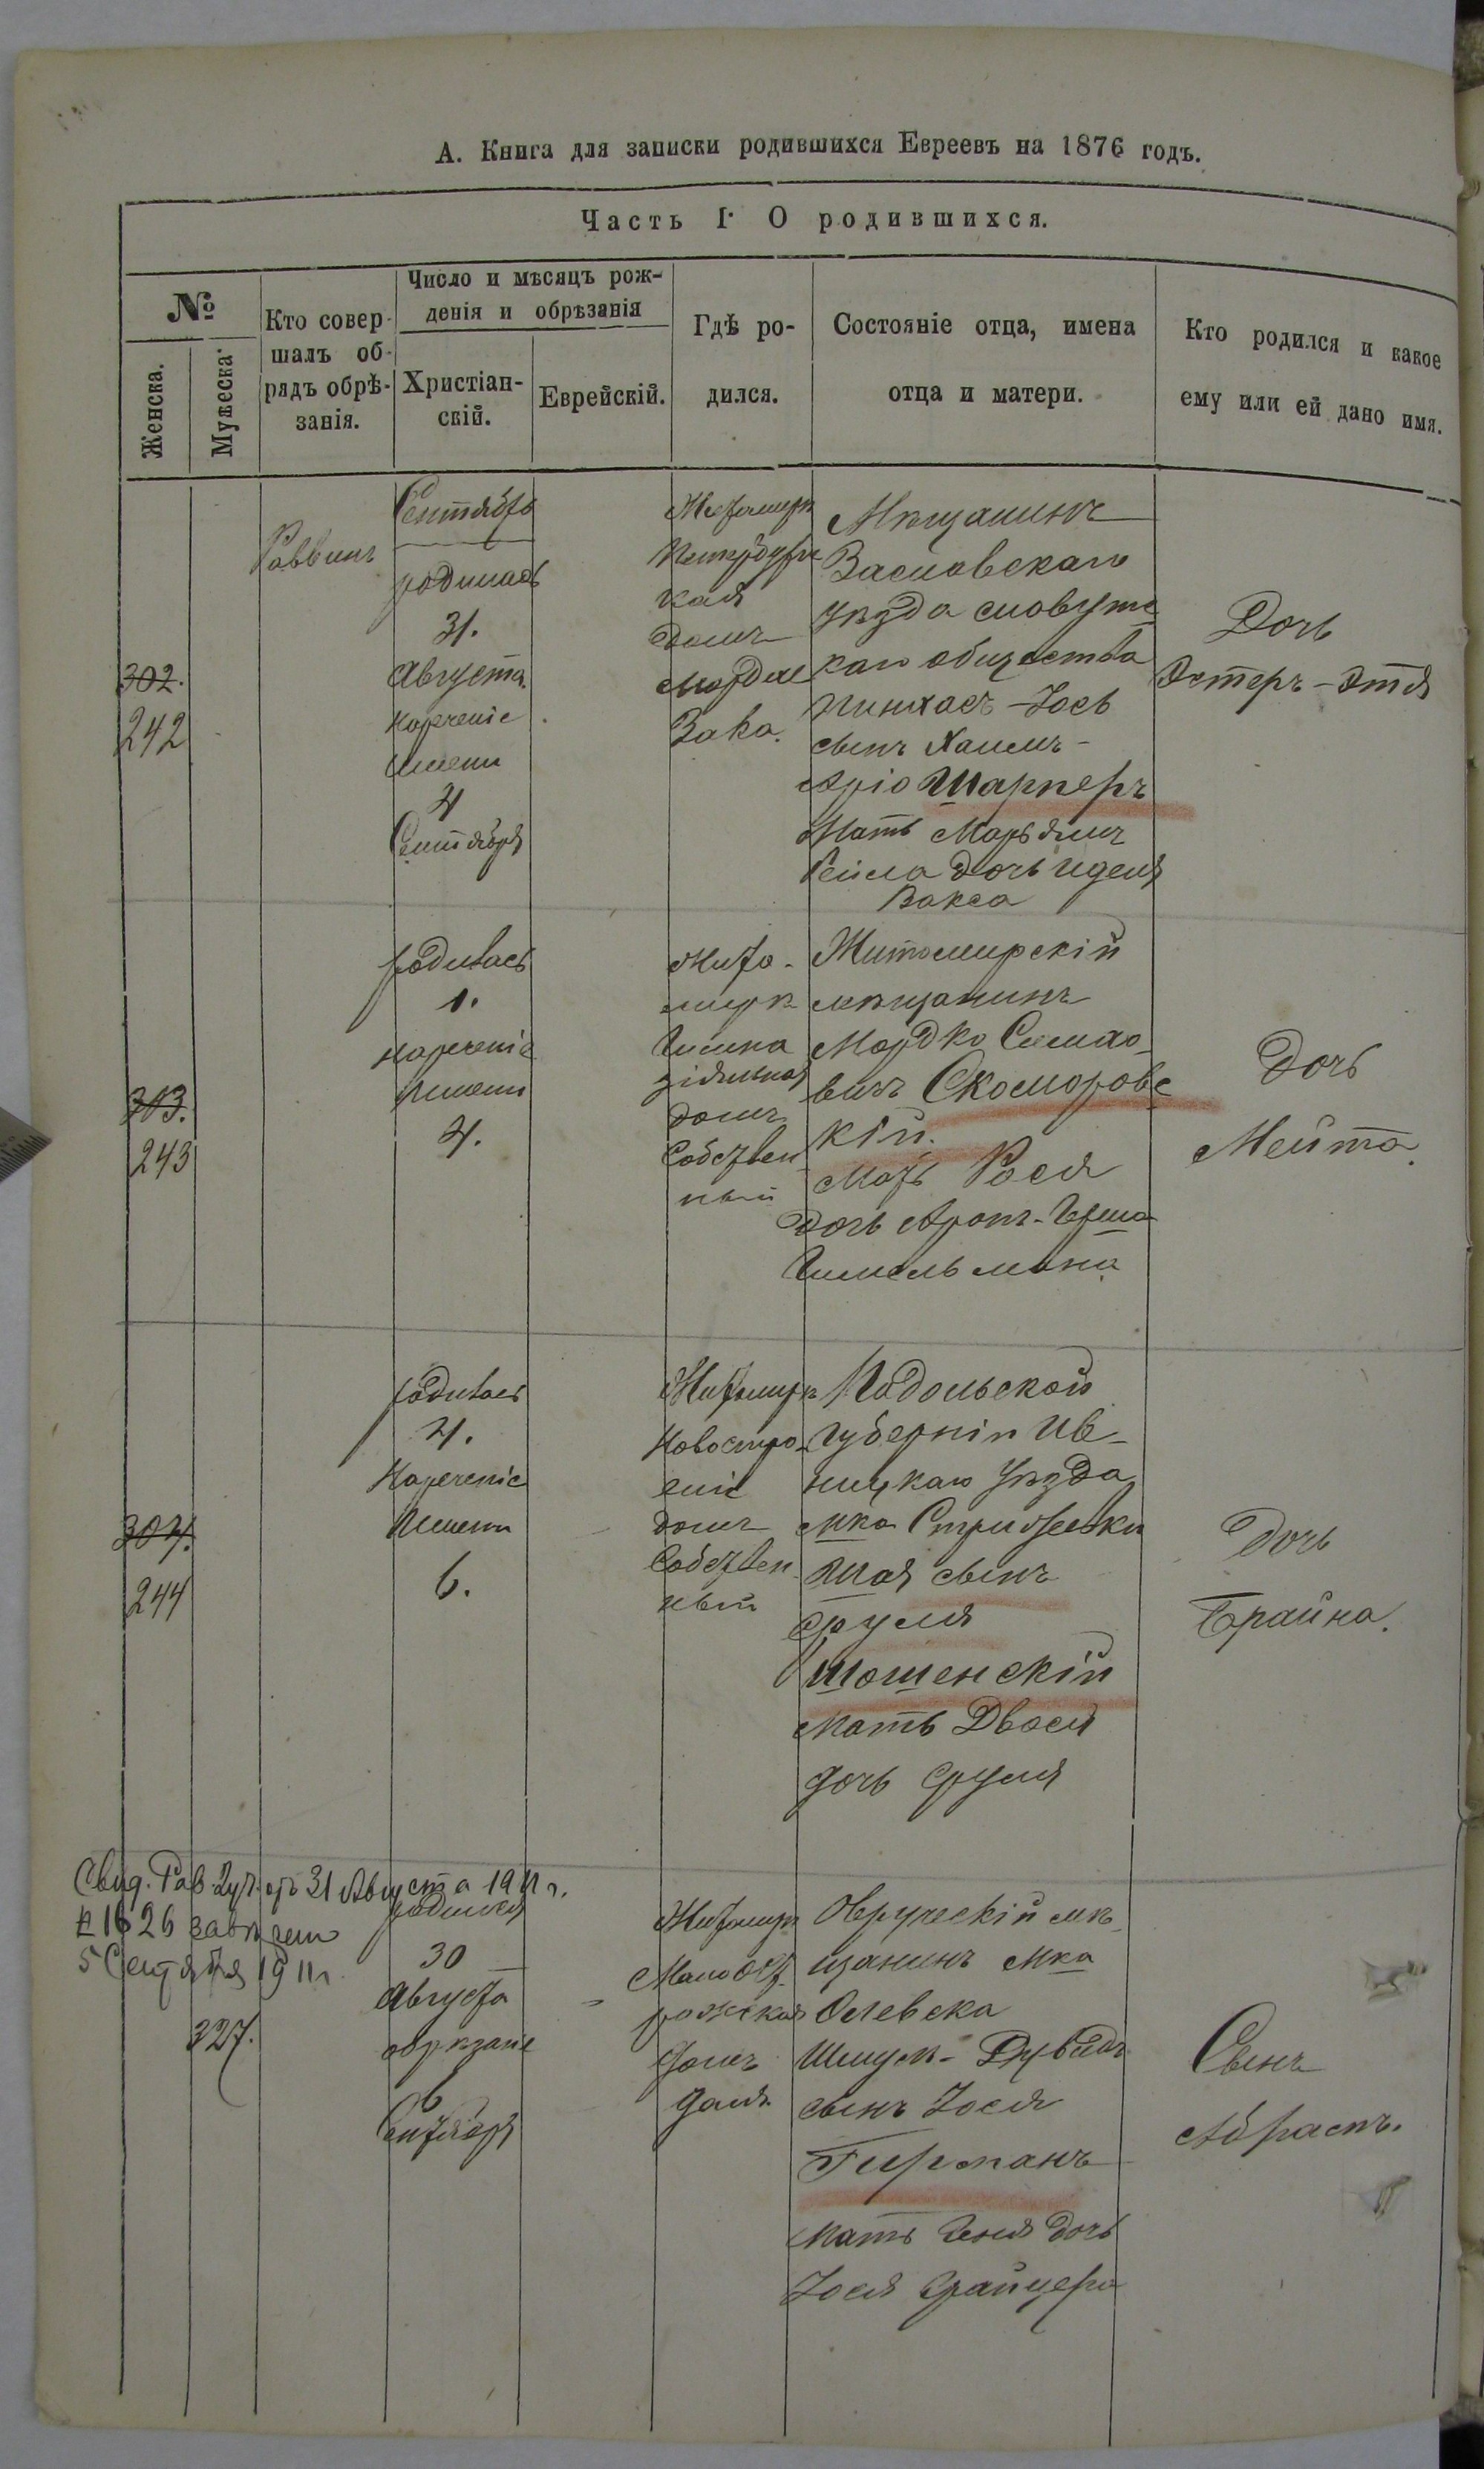 А. Книга для записки родившихся Евреевъ на 1876 годъ.
Часть I. О родившихся.
№
Женска.
Мужеска.
Кто совер-
шалъ об-
рядъ обрѣ-
занія.
Число и мѣсяцъ рож-
денія и обрѣзанія
Христіан-
скій.
Еврейскій.
Гдѣ ро-
дился.
Состояніе отца, имена
отца и матери.
Кто родился и какое
ему или ей дано имя.
302.
242
Раввинъ
Сентябрь
родилась
31.
Августа.
нареченіе
имени
4
Сентября
Житомиръ
кая
домъ
Мордке
Вака.
Мѣщанинъ
Заславскаго
уѣзда славутс
каго общества
Пинхасъ-Іось
сынъ Хаимъ-
Аріо Шарперъ
Мать Марьямъ
Рейса дочь Иделя
Вакса
Дочь
Эстеръ-Этя
303.
243
родилась
1.
нареченіе
имени
4.
Жито-
миръ
Гимна
зіяльная
домъ
Собствен
ный
Житомирскій
мѣщанинъ
Мордко Симхо-
вичъ Скоморовс
кій.
Мать Рося
дочь Аронъ-Герша
Гимельмана
Дочь
Мейта.
304.
244
родилась
4.
Нареченіе
Имени
6.
Житомиръ
Новостро-
еніе
домъ
Собствен
ный
Подольской
Губерніи Ив-
ницкаго уѣзда
мка Стрижевки
Шая сынъ
Сруля
Шошенскій
Мать Двося
дочь Сруля
Дочь
Брайна.
Свид. Рав. отъ 31 Августа 1911 г.
№ 1626
5 Сентября 1911 г.
327.
родился
30
Августа
обрѣзаніе
6
Сентября
Житомиръ
Мало Ост-
рожская
домъ
Даля.
Овручскій мѣ-
щанинъ мка
Олевска
Шмуль-Дувидъ
сынъ Іося
Гирманъ
Мать Геня дочь
Іося Срайцера
Сынъ
Абрамъ.